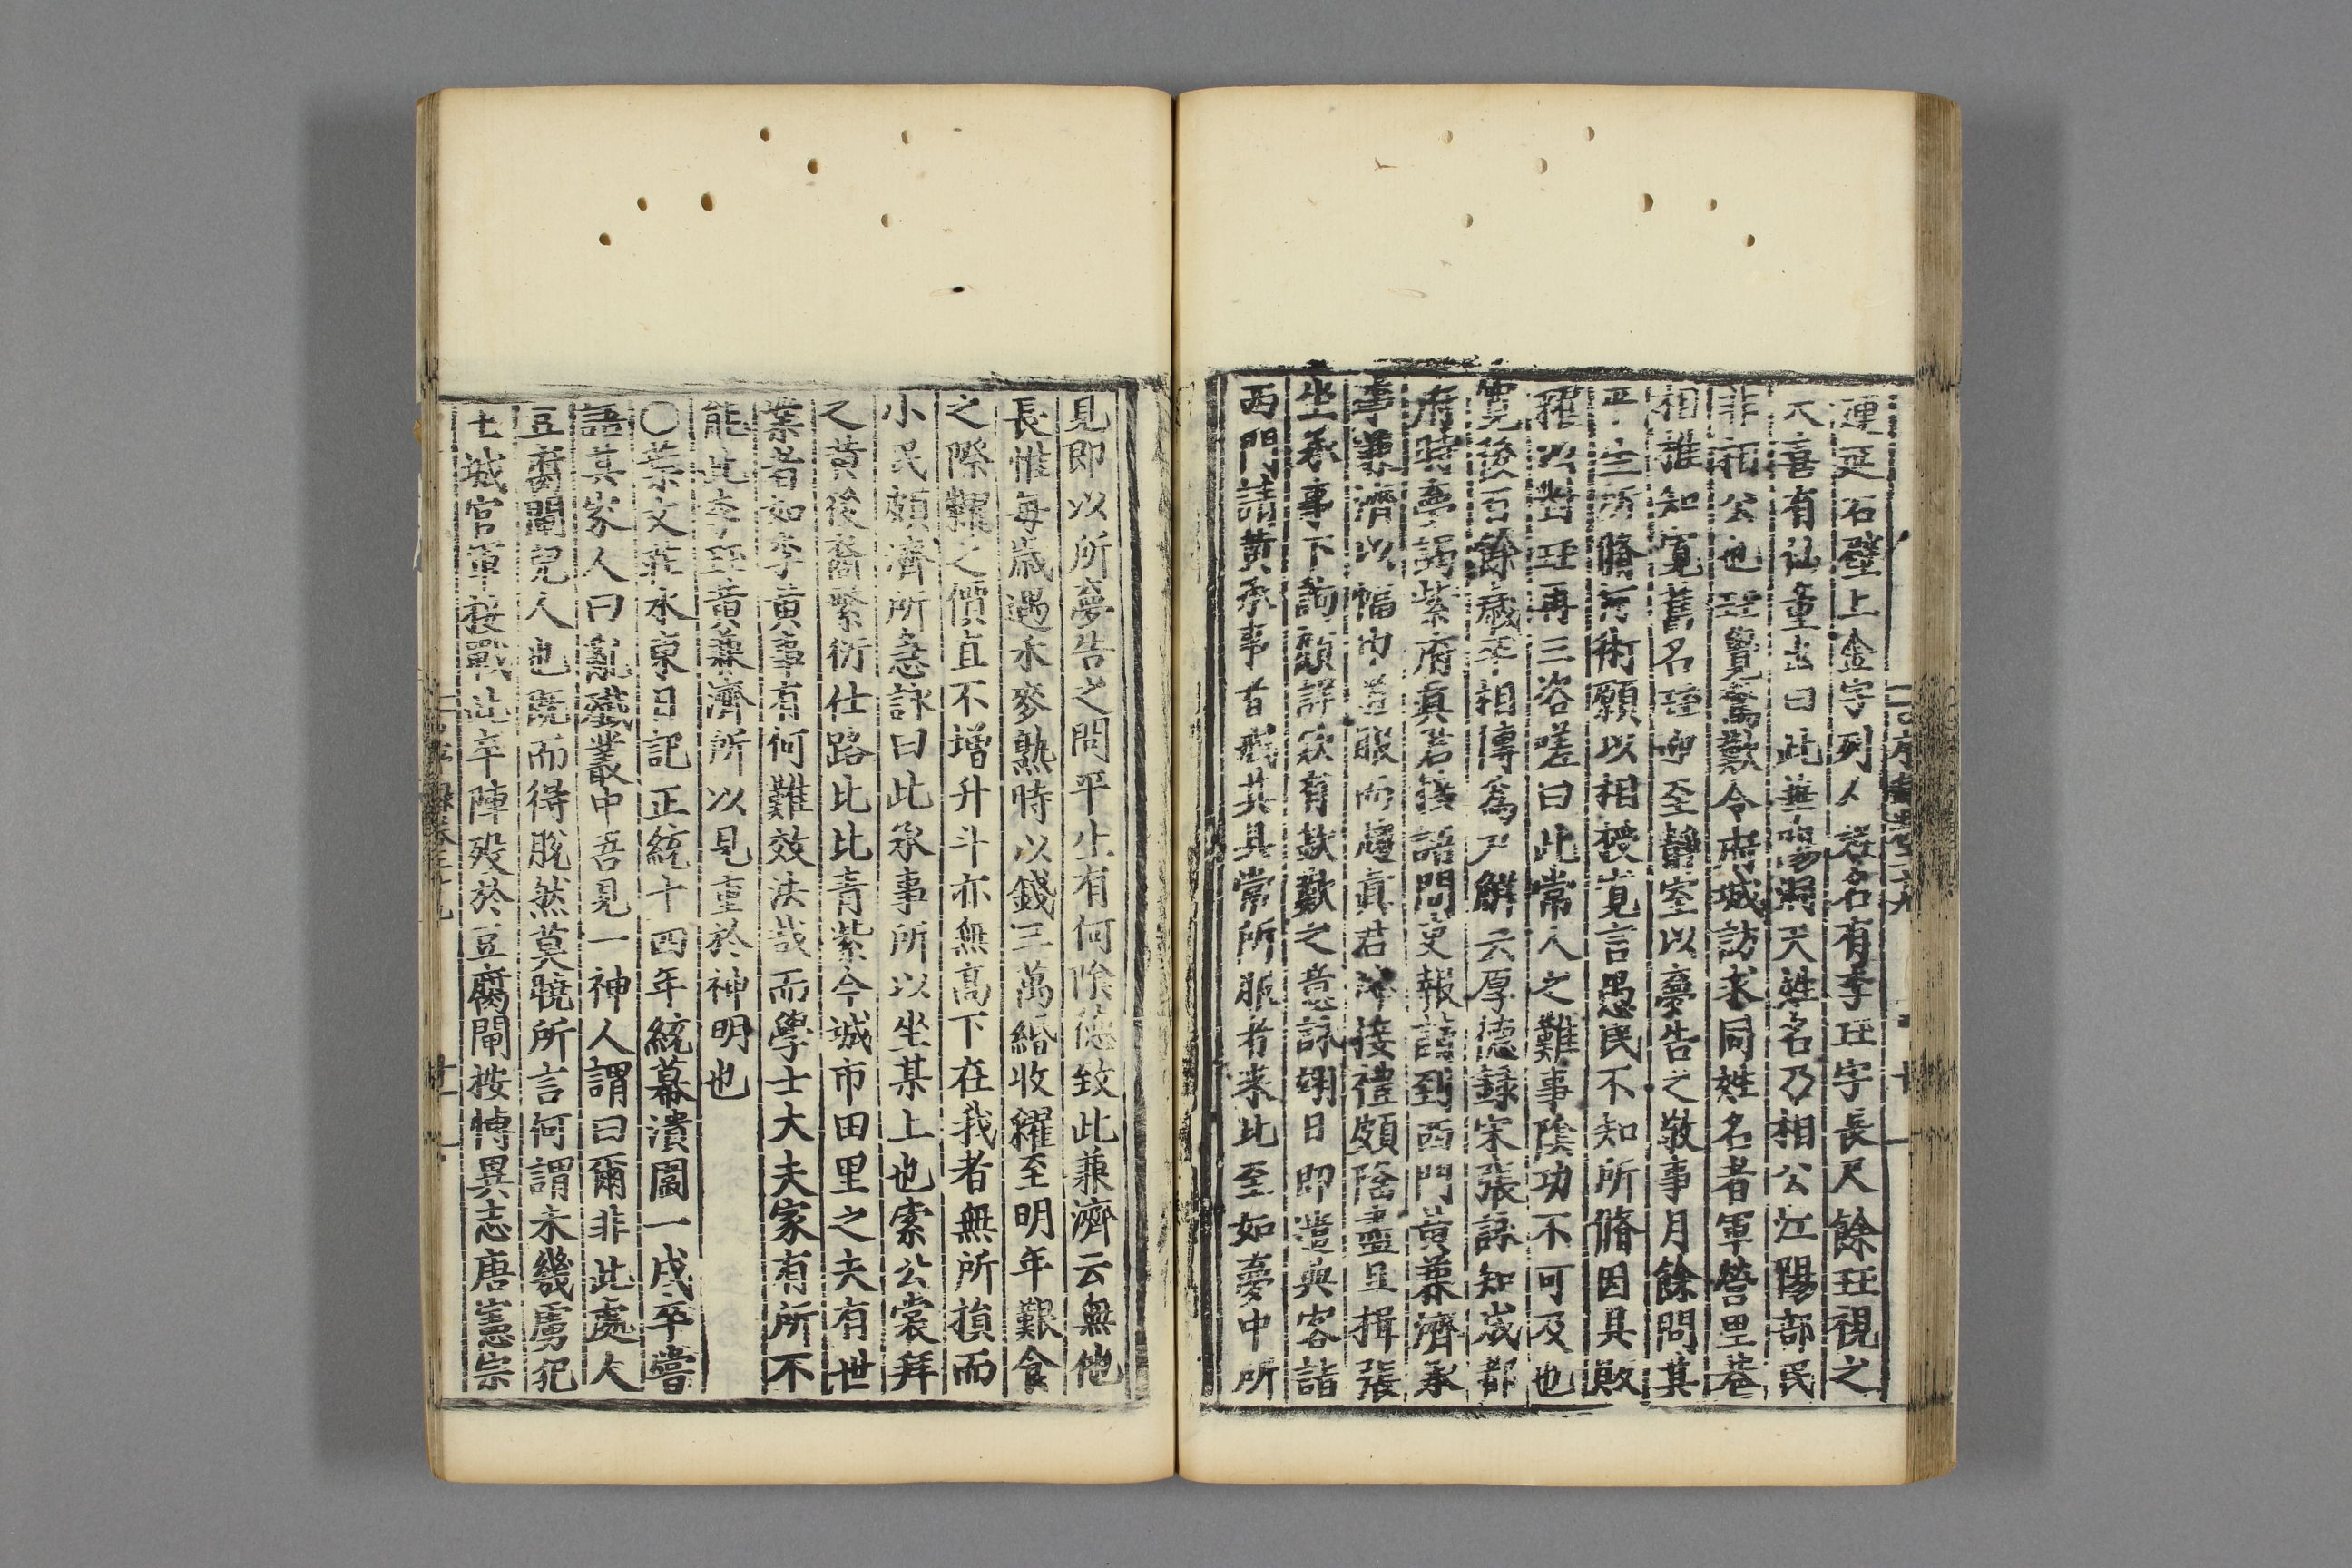 蓮延石壁上金字列人姓名有李珏字長尺餘珏視之
大喜有仙童出曰此華陽洞天姓名乃相公江陽部民
非相公也珏覺驚歎令府城訪求同姓名者軍營里巷
相推知寬舊名珏迎至靜室以夢告之敬事月餘問其
平生所脩何術願以相授寬言愚民不知所脩因具販
糴以對珏再三咨嗟曰此常人之難事陰功不可及也
寬後百餘歲卒相傳爲尸解云厚德錄宋張詠知成都
府時夢謁紫府真君接語間吏報請到西門黃兼濟承
事兼濟以幅巾道服而趨真君降接禮頗隆盡且揖張
坐承事下詢顧詳欵有欽歎之意詠翊日即遣典客詣
西門請黃承事者戒其具常所服者來比至如夢中所
見即以所夢告之問平生有何陰德致此兼濟云無他
長惟每歲遇禾麥熟時以錢三萬緡收糴至明年艱食
之際糶之價直不增升斗亦無高下在我者無所損而
小民頗濟所急詠曰此承事所以坐某上也索公裳拜
之黃後裔繁衍仕路比比青紫今城市田里之夫有世
業者如李黃事有何難效法哉而學士大夫家有所不
能此李珏黃兼濟所以見重於神明也
〇葉文莊水東日記正統十四年統幕潰圖一戍卒嘗
語其家人曰亂殲叢中吾見一神人謂曰爾非此處人
豆腐閘兒人也旣而得脫然莫曉所言何謂未幾虜犯
土城官軍接戰此卒陣歿於豆腐閘按博異志唐憲宗